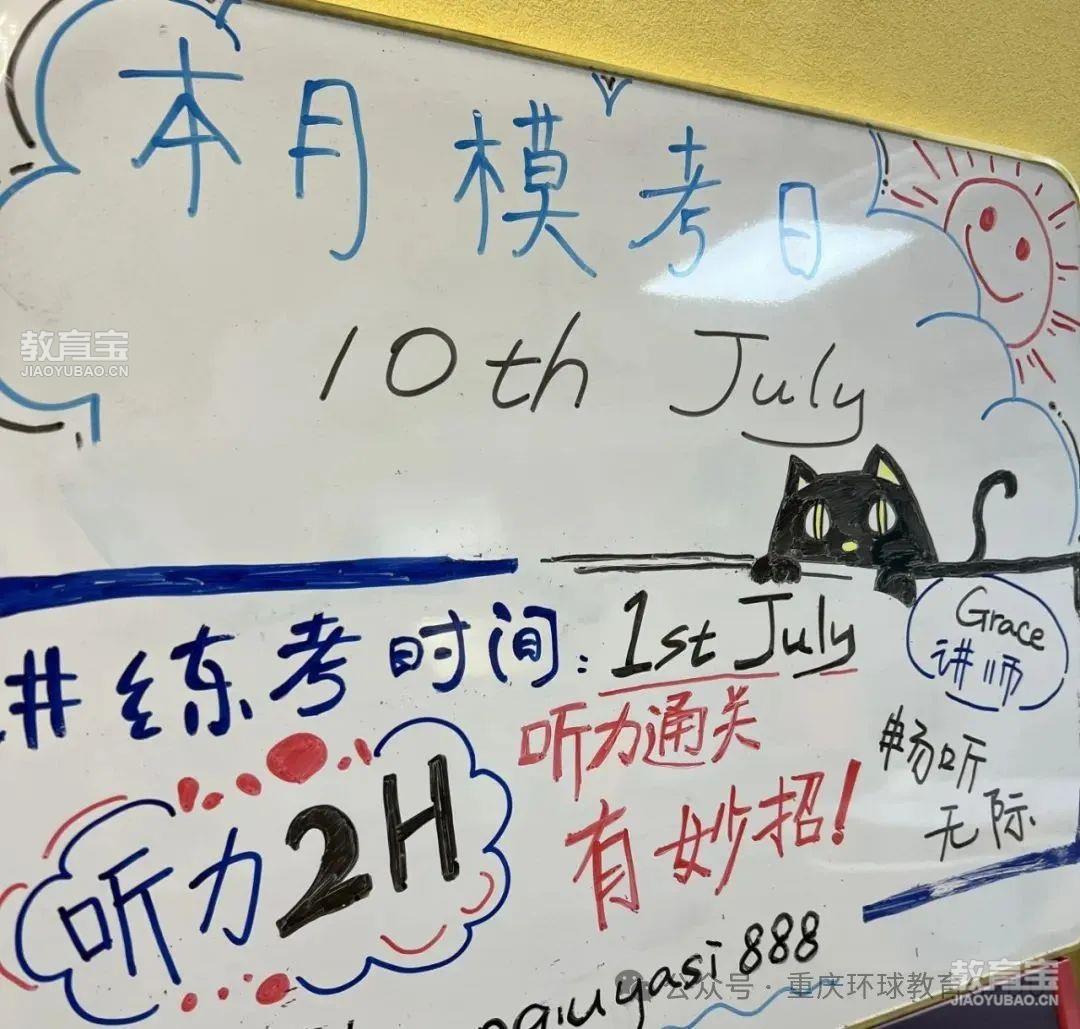 本月模考日
10th July
教育宝
JIAOYUBAO.CN
#练考时间：1st July
Grace
讲师
听力通关
有妙招！
#畅听
无际
听力2H
qiuyasi888
公众号·重庆环球教育
教育宝
JIAOYUBAO.CN